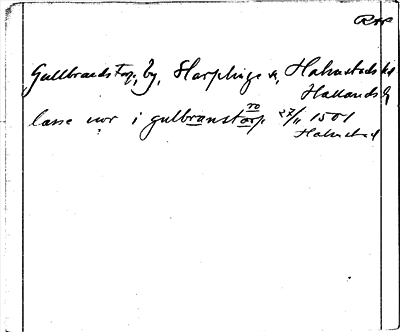 Gullbrandstorp, by, Harplinge sn, Halmstads hd
Hallands l
lasse i gulbranstorp 27/11 1501
Halmstad